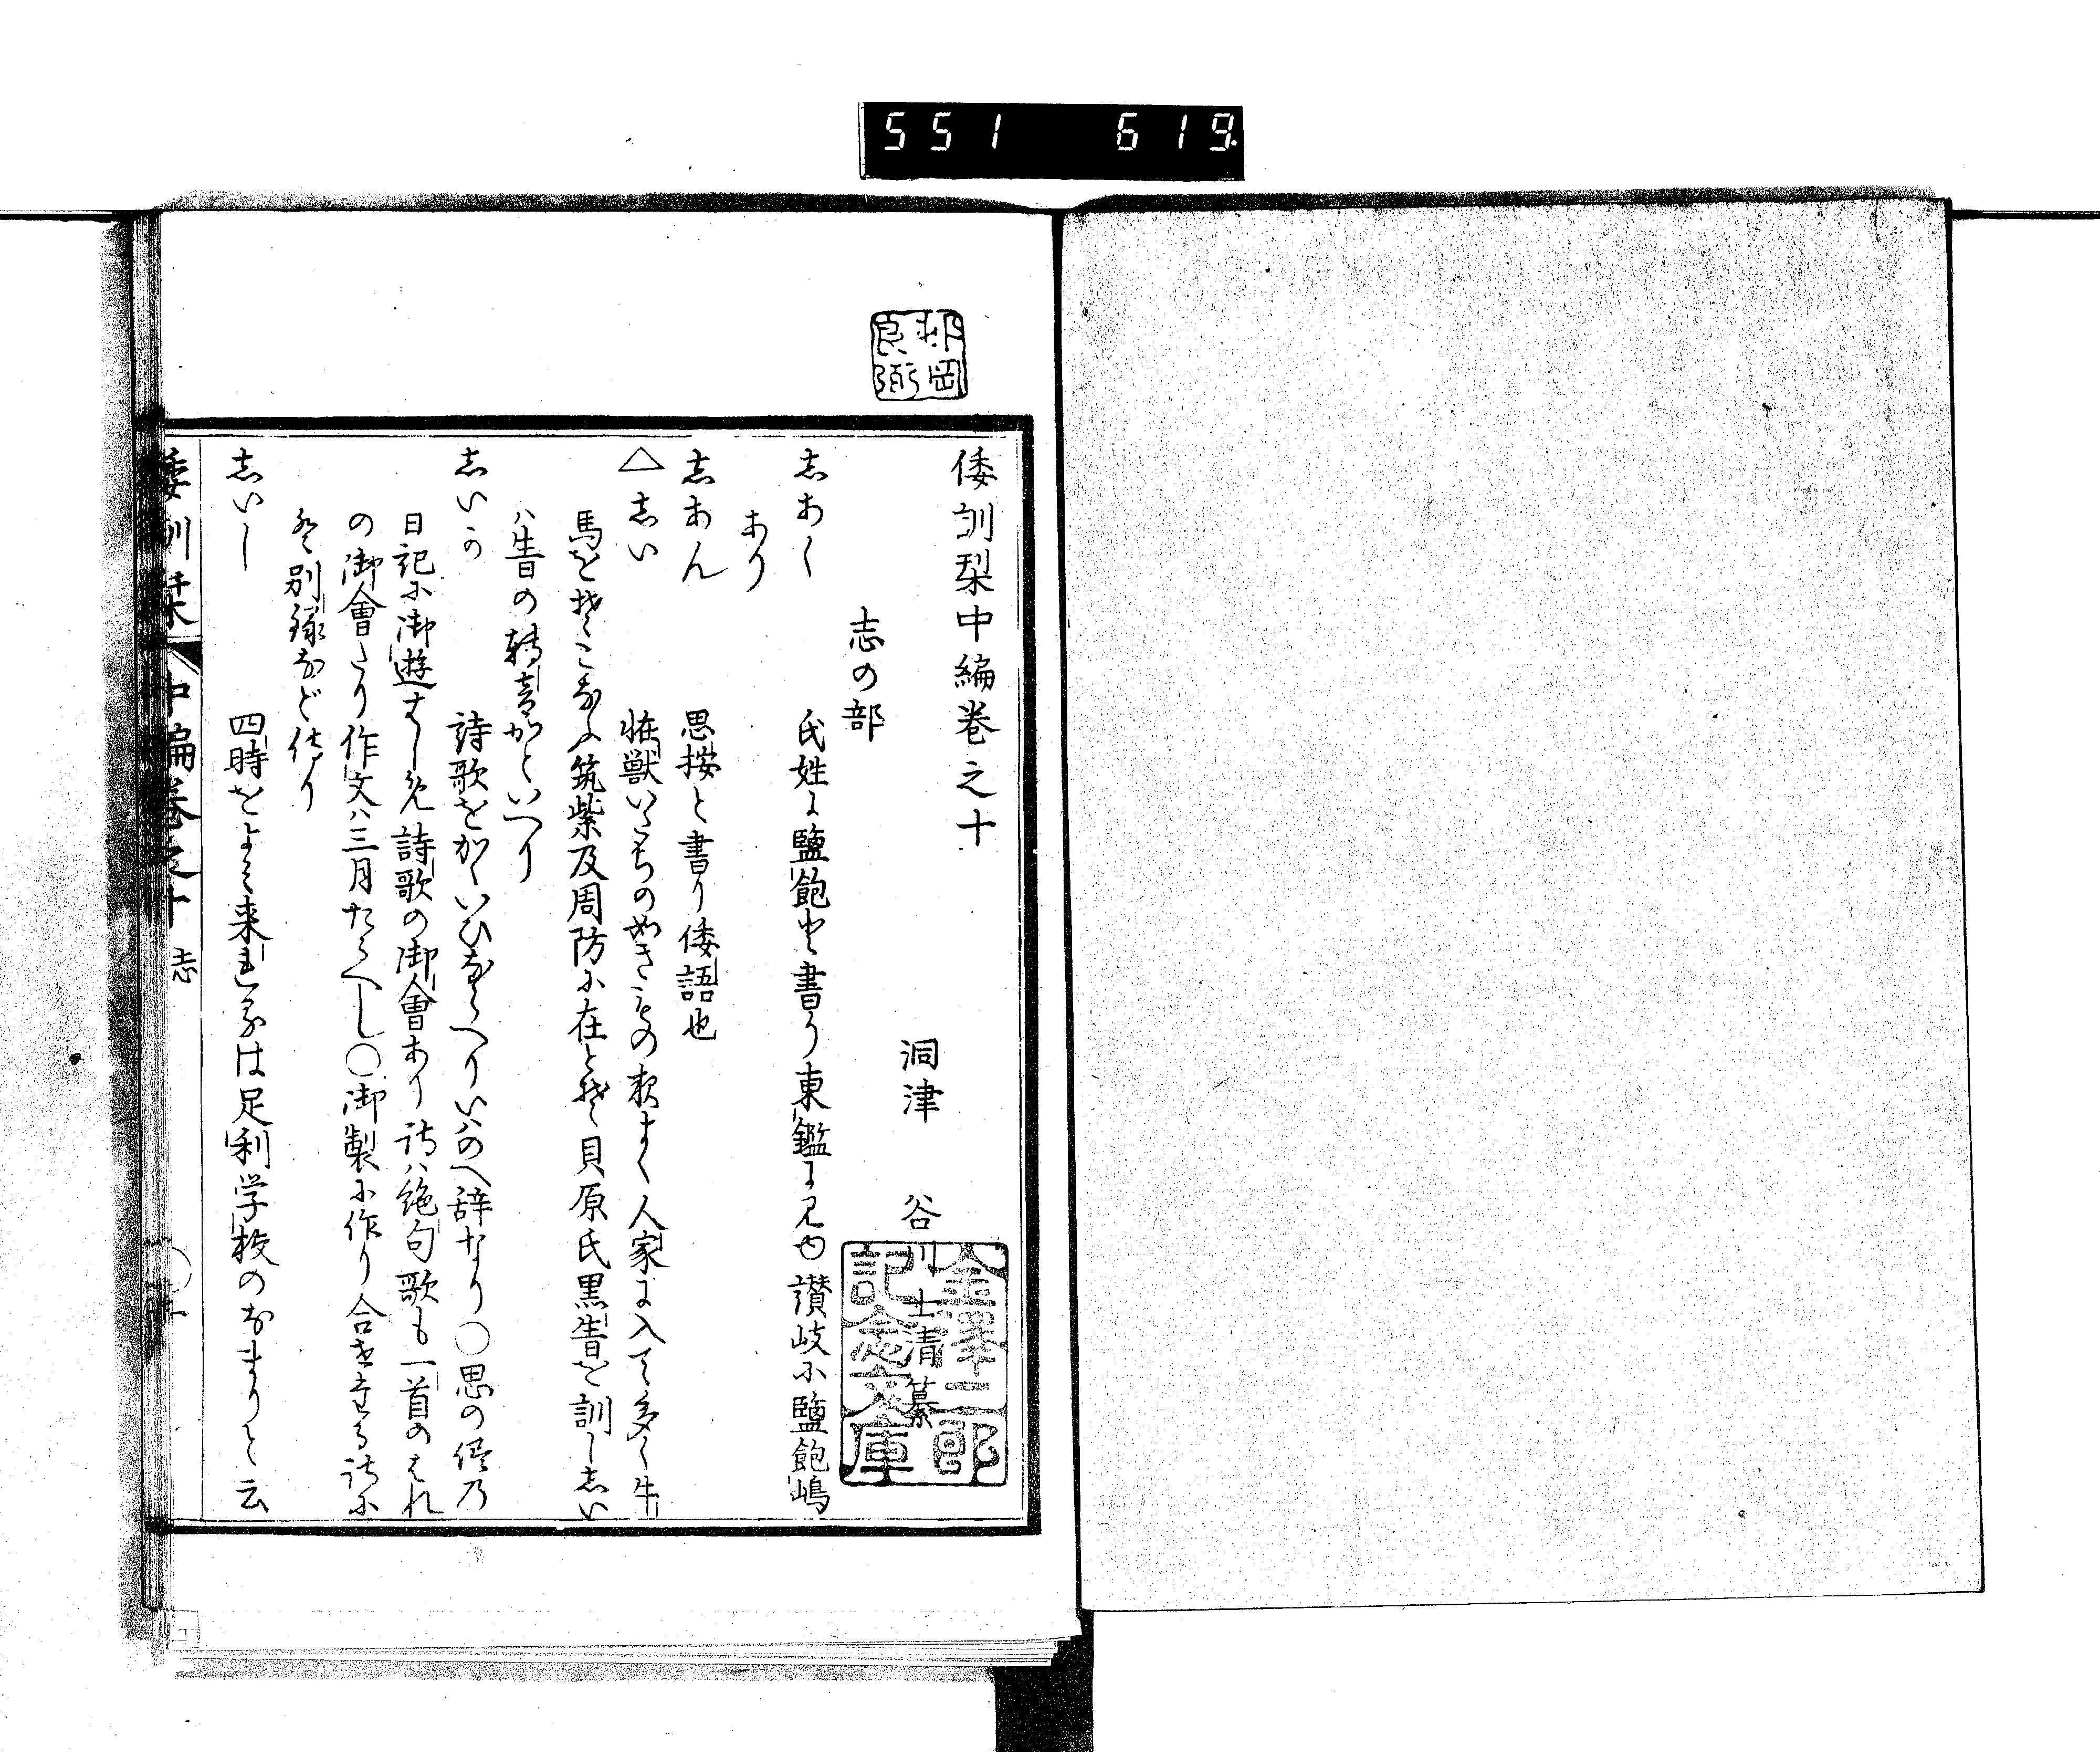 551 619
邨岡良弼
倭訓栞中編巻之十
洞津 谷川士清纂
金澤二郎記念文庫
志の部
志あく 氏姓に鹽飽と書り東鑑に見ゆ讃岐に鹽飽嶋
あり
志あん 思按と書り倭語也
△志い 恠獣いたちの如きもの夜よく人家に入て多く牛
馬をそこなふ筑紫及周防に在とそ貝原氏黒眚を訓し志い
ハ眚の轉音かといへり
志いか 詩歌をかくいひならへりいハのへ辞なり○思の侭乃
日記に御遊はしめ詩歌の御會あり詩ハ絶句歌も一首のはれ
の御會たり作文ハ三月たるへし○御製に作り合せたる詩に
別録など侍り
志いし 四時をよみ来れるは足利学校のなまりと云
倭訓栞 中編巻之十 志